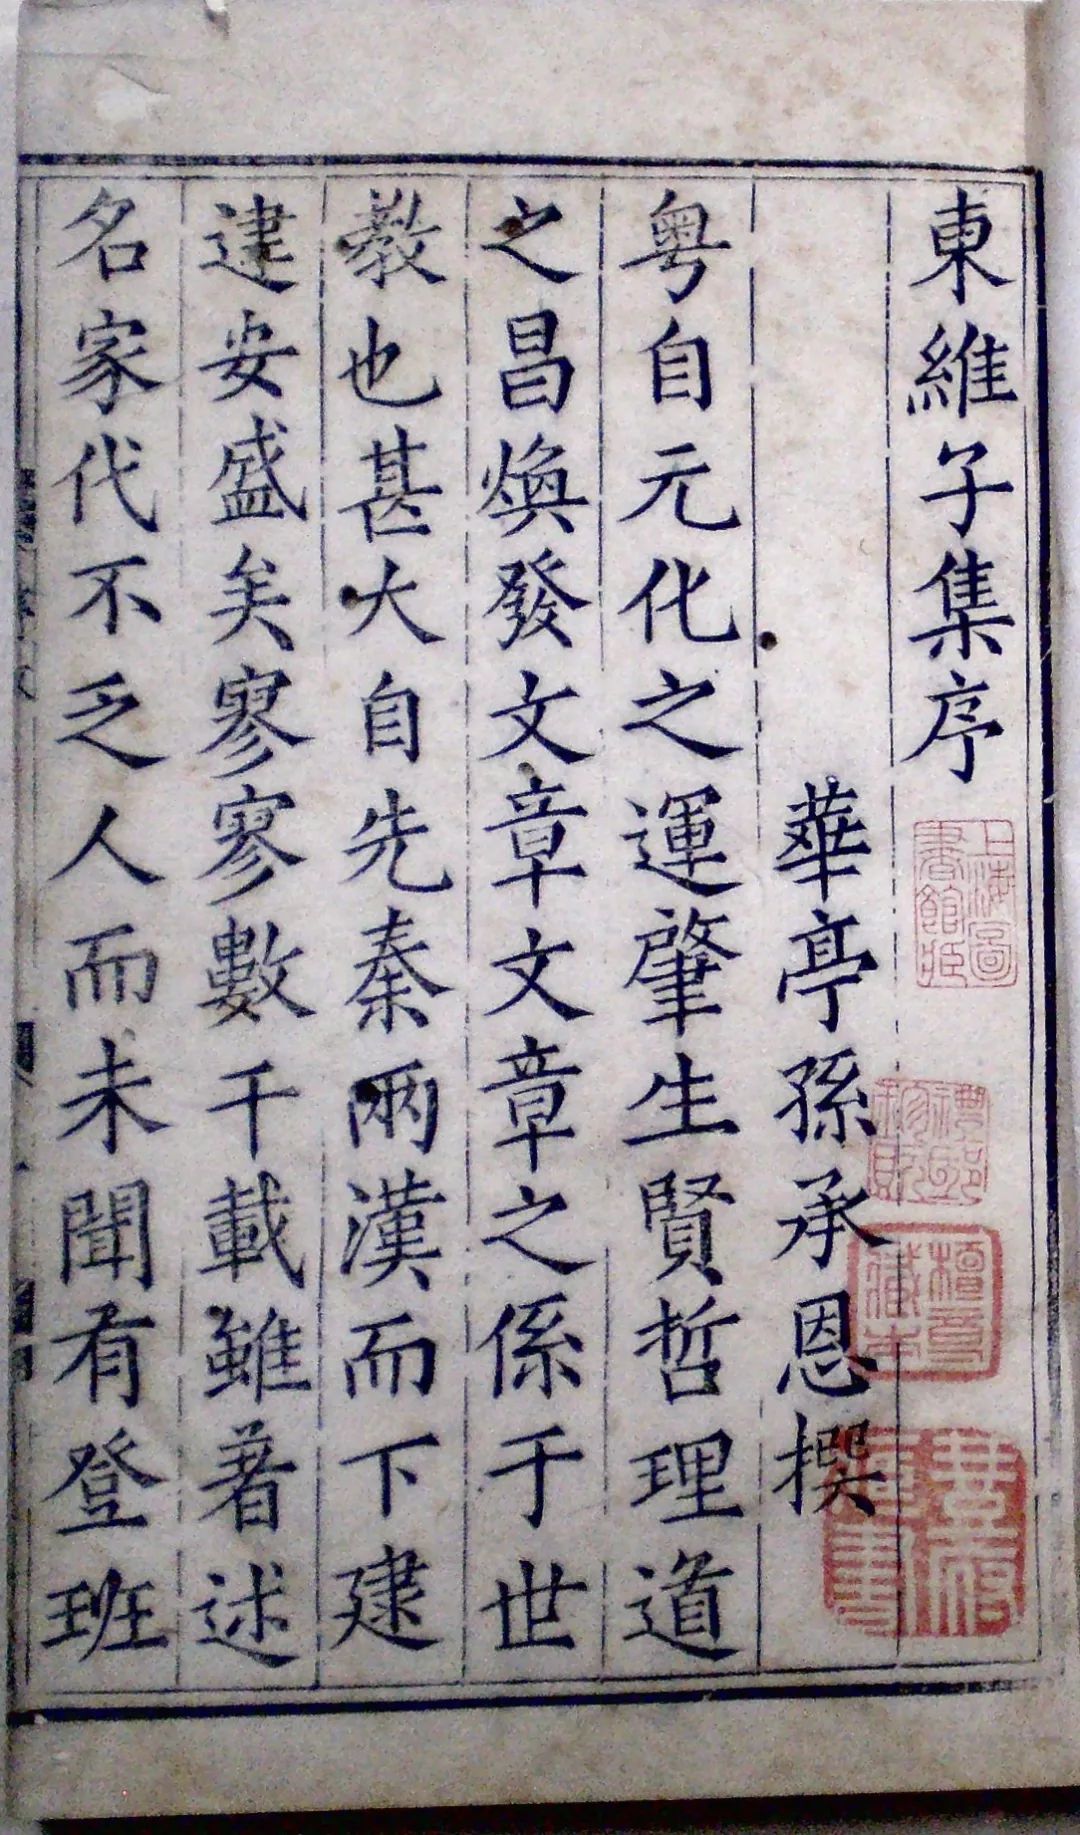 東維子集序
華亭孫承恩撰
粤自元化之運肇生賢哲理道
之昌煥發文章文章之係于世
教也甚大自先秦兩漢而下建
建安盛矣寥寥數千載雖著述
名家代不乏人而未聞有登班
上海圖書館藏